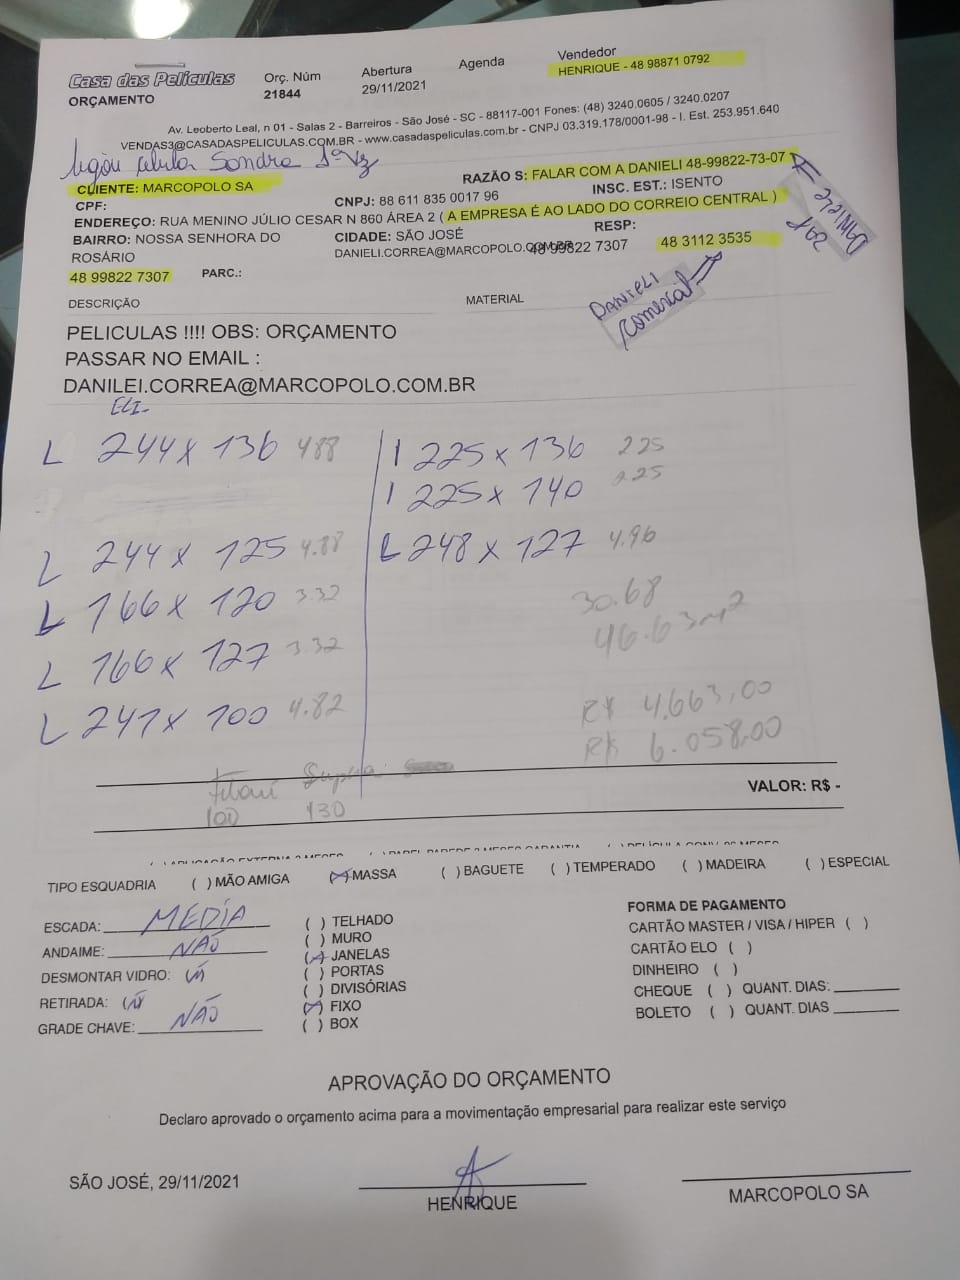 Casa das Películas
ORÇAMENTO
Orç. Núm
21844
Abertura
29/11/2021
Agenda
Vendedor
HENRIQUE - 48 98871 0792
Av. Leoberto Leal, n 01 - Salas 2 - Barreiros - São José - SC - 88117-001 Fones: (48) 3240.0605 / 3240.0207
VENDAS3@CASADASPELICULAS.COM.BR - www.casadaspeliculas.com.br - CNPJ 03.319.178/0001-98 - I. Est. 253.951.640
Sandra 1ª Vz
CLIENTE: MARCOPOLO SA
RAZÃO S: FALAR COM A DANIELI 48-99822-73-07
CPF:
CNPJ: 88 611 835 0017 96
INSC. EST.: ISENTO
ENDEREÇO: RUA MENINO JÚLIO CESAR N 860 ÁREA 2 ( A EMPRESA É AO LADO DO CORREIO CENTRAL )
BAIRRO: NOSSA SENHORA DO ROSÁRIO
CIDADE: SÃO JOSÉ
RESP:
DANIELI.CORREA@MARCOPOLO.COM.BR
48 99822 7307
48 3112 3535
48 99822 7307
PARC.:
DANIELE
DANIELI
Comercial
DESCRIÇÃO
MATERIAL
PELICULAS !!!! OBS: ORÇAMENTO
PASSAR NO EMAIL :
DANILEI.CORREA@MARCOPOLO.COM.BR
ELI-
L 244 x 136 4.88
L 244 x 125 4.88
L 166 x 120 3.32
L 166 x 127 3.32
L 241 x 100 4.82
1 225 x 136 2.25
1 225 x 140 2.25
L 248 x 127 4.96
30.68
46.63m²
R$ 4.663,00
R$ 6.058,00
100 130
VALOR: R$ -
( ) APLICAÇÃO EXTERNA 3 MESES
TIPO ESQUADRIA
( ) MÃO AMIGA
(X) MASSA
( ) BAGUETE
( ) TEMPERADO
( ) MADEIRA
( ) ESPECIAL
ESCADA: MEDIA
ANDAIME: NÃO
DESMONTAR VIDRO: (N)
RETIRADA: (N)
GRADE CHAVE: NÃO
( ) TELHADO
( ) MURO
(X) JANELAS
( ) PORTAS
( ) DIVISÓRIAS
(X) FIXO
( ) BOX
FORMA DE PAGAMENTO
CARTÃO MASTER / VISA / HIPER ( )
CARTÃO ELO ( )
DINHEIRO ( )
CHEQUE ( ) QUANT. DIAS:
BOLETO ( ) QUANT. DIAS
APROVAÇÃO DO ORÇAMENTO
Declaro aprovado o orçamento acima para a movimentação empresarial para realizar este serviço
SÃO JOSÉ, 29/11/2021
HENRIQUE
MARCOPOLO SA